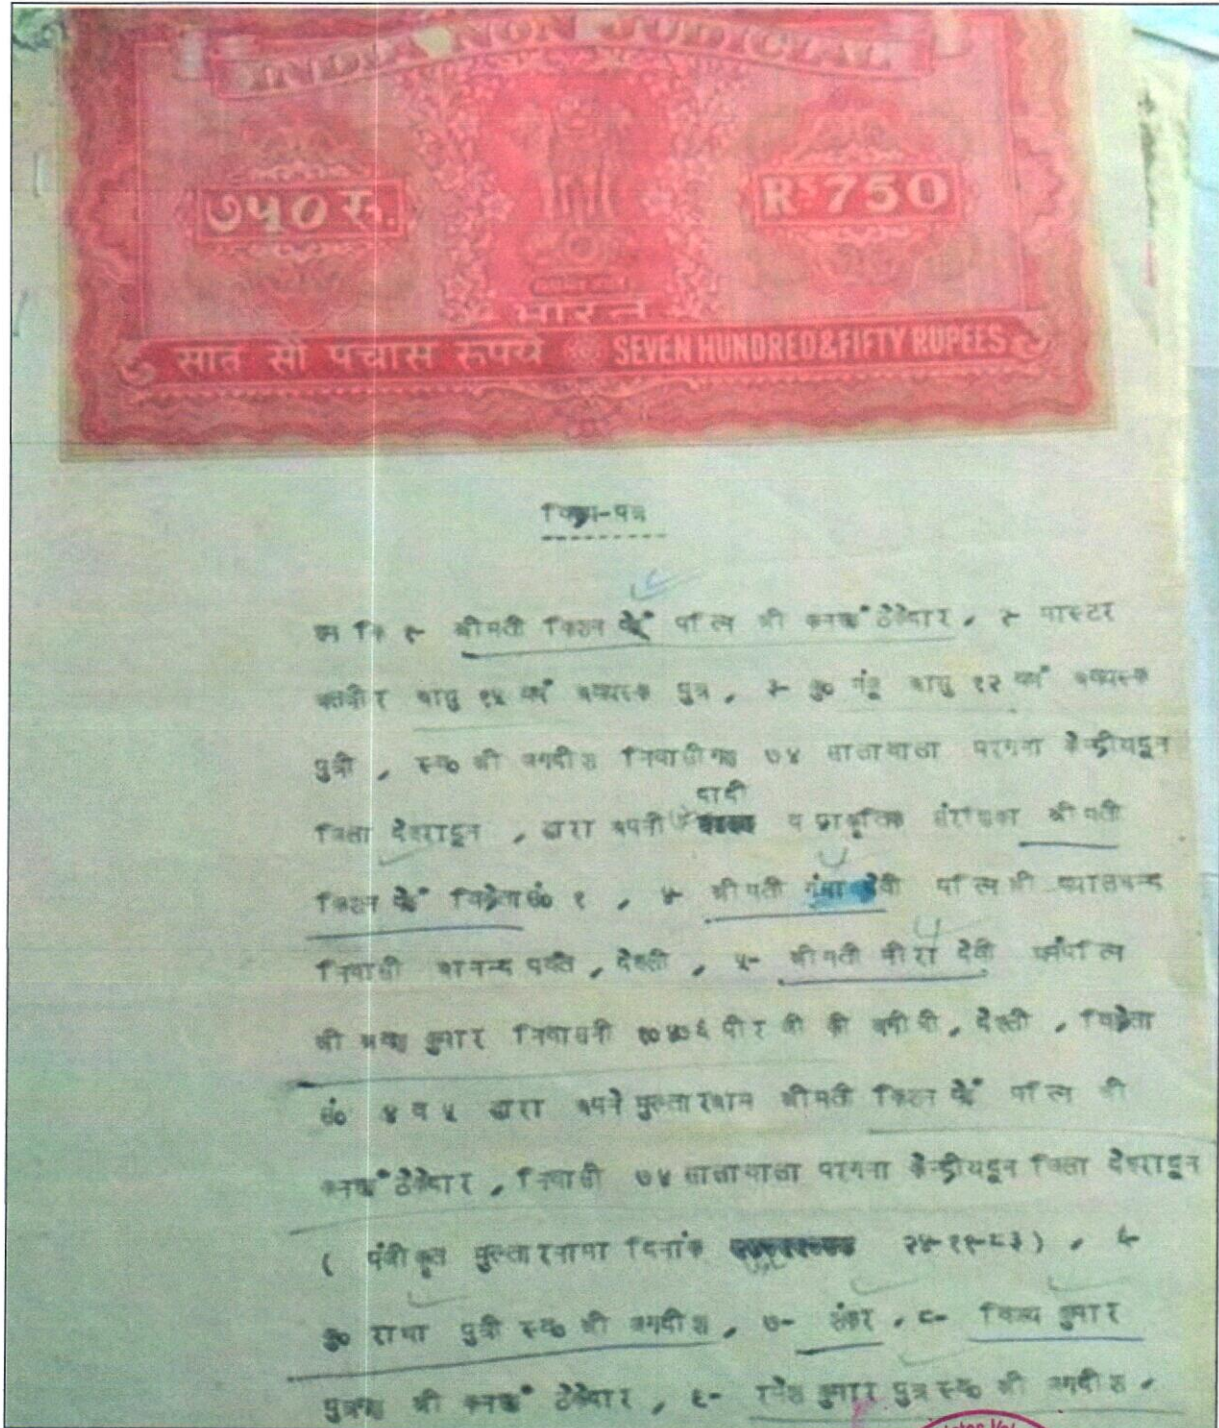 INDIA NON JUDICIAL
७५० रु.
Rs 750
भारत
सात सौ पचास रूपये SEVEN HUNDRED & FIFTY RUPEES
विक्रय-पत्र
हम कि १- श्रीमती किशन पत्नि श्री ठेकेदार , २- मास्टर
बलबीर आयु १५ वर्ष अवयस्क पुत्र , ३- कु० मंजू आयु १२ वर्ष अवयस्क
पुत्री , स्व० श्री जगदीश निवासीगण ७४ सालावाला परगना केन्द्रीयदून
दादी
जिला देहरादून , द्वारा अपनी व प्राकृतिक संरक्षिका श्रीमती
किशन विक्रेता सं० १ , ४- श्रीमती गंगा देवी पत्नि श्री
निवासी आनन्द पर्वत , देहली , ५- श्रीमती मीरा देवी धर्मपत्नि
श्री कुमार निवासनी पीर जी की , देहली , विक्रेता
सं० ४ व ५ द्वारा अपने मुख्तारआम श्रीमती किशन पत्नि श्री
ठेकेदार , निवासी ७४ सालावाला परगना केन्द्रीयदून जिला देहरादून
( पंजीकृत मुख्तारनामा दिनांक २५-११-८३ ) , ६-
कु० राधा पुत्री स्व० श्री जगदीश , ७- शंकर , ८- विजय कुमार
पुत्रगण श्री ठेकेदार , ९- रमेश कुमार पुत्र स्व० श्री जगदीश ,